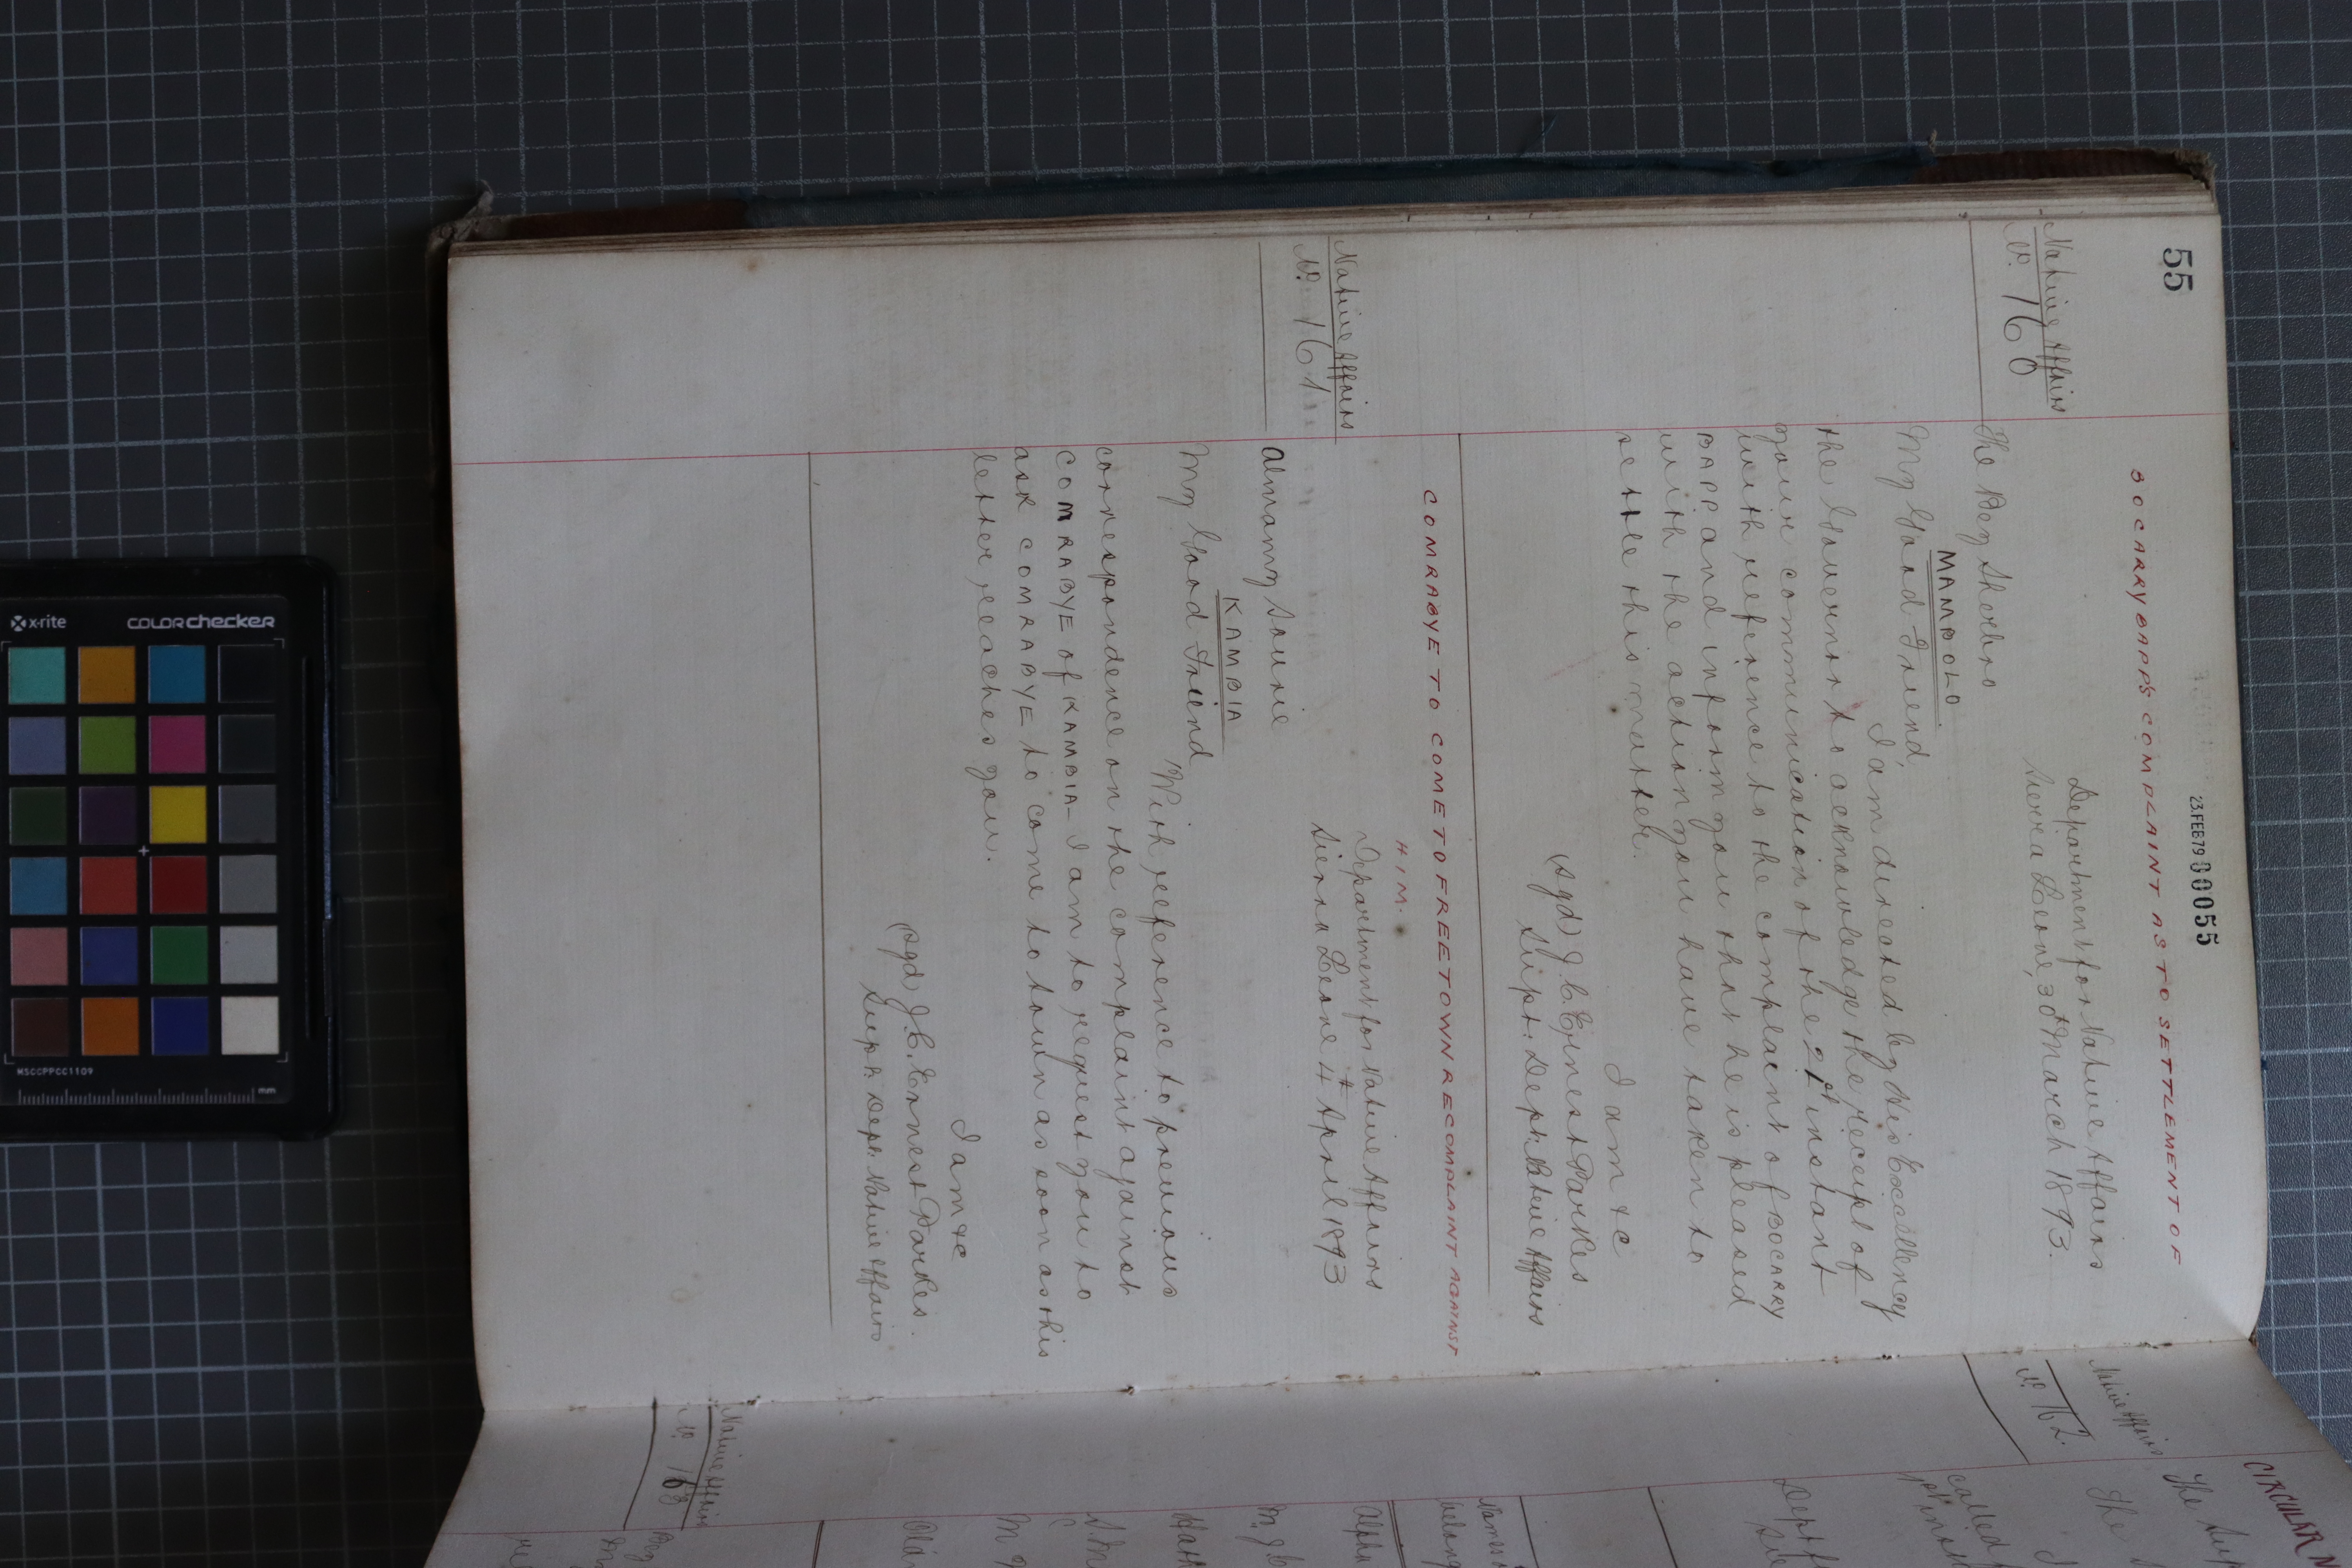 55
23 FEB 79 00055
BOCARRY BAPP'S COMPLAINT AS TO SETTLEMENT OF
Native Affairs
No. 160
Department for Native Affairs
Sierra Leone, 30th March 1893.
The Bey Sherbro
MAMBOLO
My Good Friend,
I am directed by His Excellency
the Governor to acknowledge the receipt of
your communication of the 21st instant
with reference to the complaint of BOCARRY
BAPP and inform you that he is pleased
with the action you have taken to
settle this matter.
I am &c
(sgd) J. C. Ernest Parkes
Supt. Dept. Native Affairs
COMRABYE TO COME TO FREETOWN RE COMPLAINT AGAINST
HIM.
Native Affairs
No. 161
Department for Native Affairs
Sierra Leone 4th April 1893
Almamy Sourie
KAMBIA
My Good Friend
With reference to previous
correspondence on the complaint against
COMRABYE of KAMBIA - I am to request you to
ask COMRABYE to come to town as soon as this
letter reaches you.
I am &c
(sgd) J. C. Ernest Parkes.
Supt. Dept. Native Affairs
CIRCULAR
Native Affairs
No. 162
The
The
called
Dept
Names
belong
Alpha
Native Affairs
No. 163
Bey
x-rite
COLORchecker
MSCCPPCC1109
mm